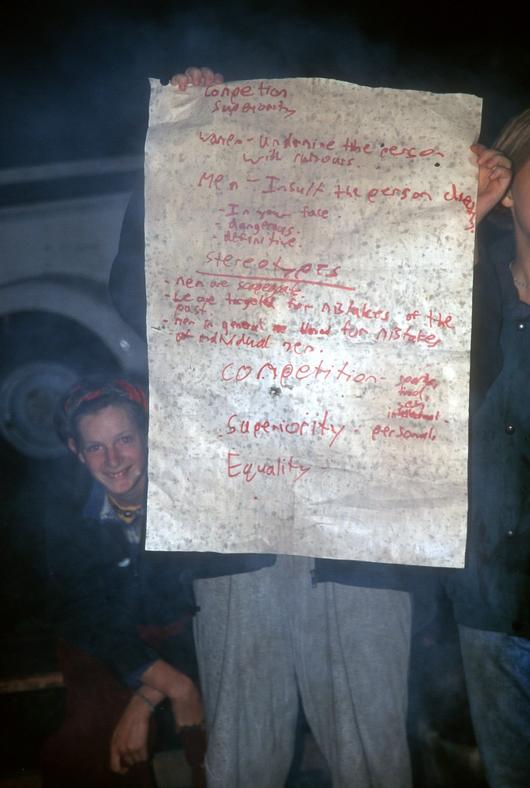 Competion
Superiority
Women - Undermine the person
with rumours.
Men - Insult the person directly
- In your face.
- dangerous.
- definitive.
Stereotypes
- men are
- we are targeted for mistakes of the
past.
- men in general are blamed for mistakes
of individual men.
Competition -
intellectual.
Superiority - personal.
Equality